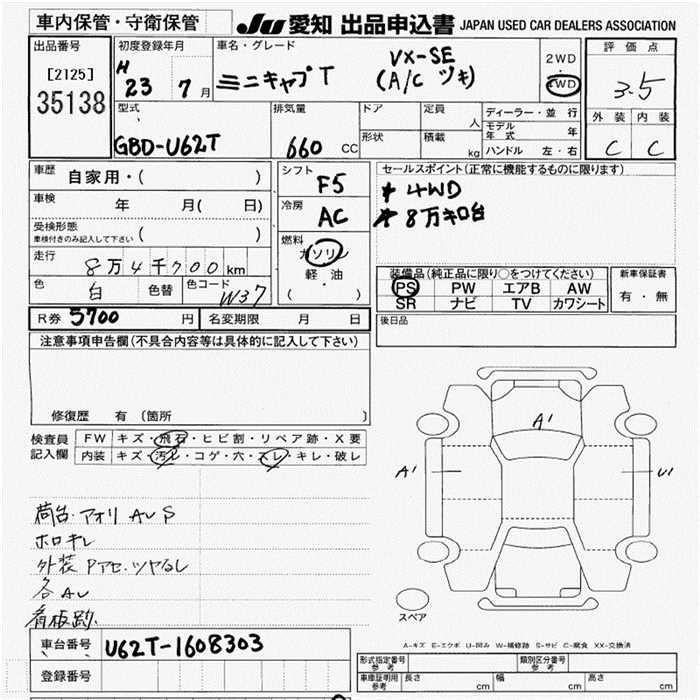 車内保管・守衛保管
JU 愛知 出品申込書 JAPAN USED CAR DEALERS ASSOCIATION
出品番号
[2125]
35138
初度登録年月
H 23 7月
車名・グレード
ミニキャブT
VX-SE
(A/C ヅキ)
2WD
4WD
評価点
3.5
外装 内装
C C
型式
GBD-U62T
排気量
660 CC
ドア
形状
定員 人
積載 kg
ディーラー・並行
モデル年式 年
ハンドル 左・右
車歴 自家用・( )
車検 年 月( 日)
受検形態
車検付きのみ記入して下さい ( )
走行 8万4千700km
色 白 色替 色コード W37
シフト F5
冷房 AC
燃料
ガソリン
軽・油
( )
セールスポイント(正常に機能するものに限ります)
* 4WD
* 8万キロ台
装備品(純正品に限り○をつけてください)
PS PW エアB AW
SR ナビ TV カワシート
新車保証書
有・無
後日品
R券 5700円 名変期限 月 日
注意事項申告欄(不具合内容等は具体的に記入して下さい)
修復歴 有 (箇所 )
検査員記入欄
FW キズ・飛石・ヒビ割・リペア跡・X要
内装 キズ・汚レ・コゲ・穴・スレ・キレ・破レ
荷台.アオリ AU S
ホロキレ
外装 Pアセ.ツヤなし
各AU
看板跡.
A1
A1
U1
スペア
A-キズ E-エクボ U-凹み W-補修跡 S-サビ C-腐食 XX-交換済
車台番号 U62T-1608303
登録番号
型式指定番号参考 類別区分番号参考
車庫証明用参考 長さ cm 幅 cm 高さ cm